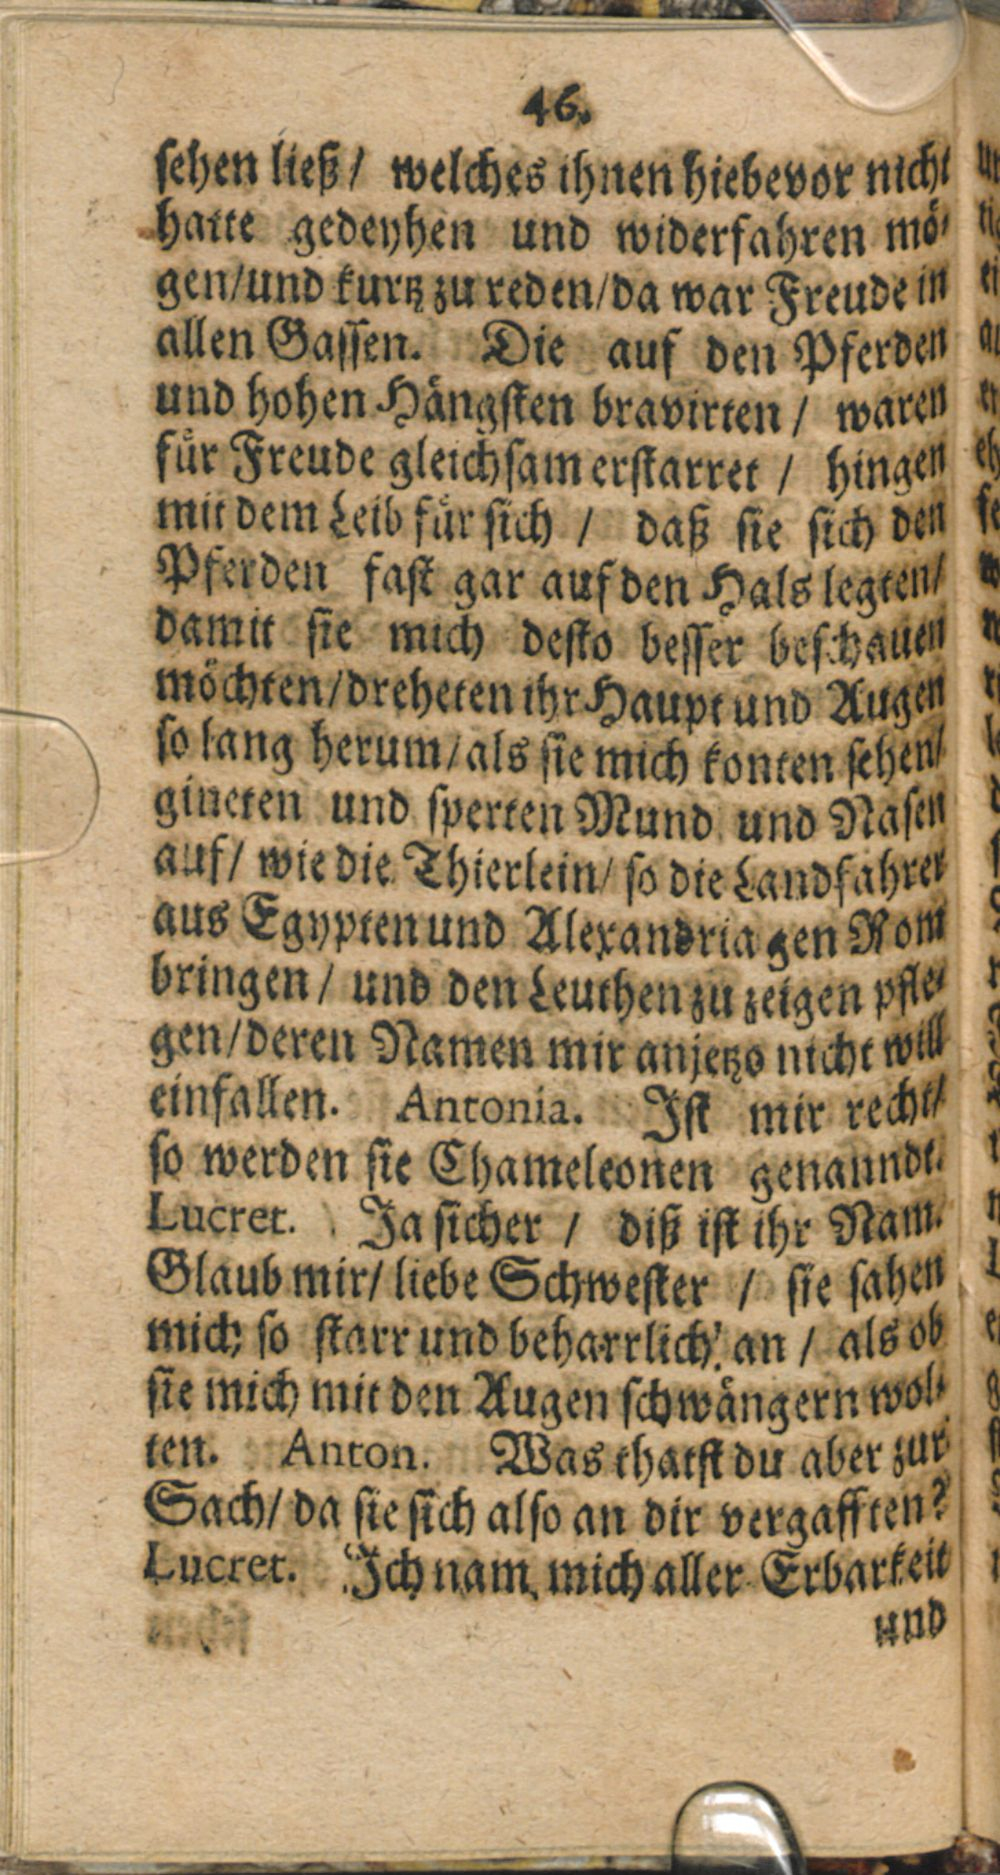 46.
sehen ließ/ welches ihnen hiebevor nicht
hatte gedeyhen und widerfahren mö-
gen/und kurtz zu reden/da war Freude in
allen Gassen. Die auf den Pferden
und hohen Hängsten bravirten/ waren
für Freude gleichsam erstarret/ hingen
mit dem Leib für sich/ daß sie sich den
Pferden fast gar auf den Hals legten/
damit sie mich desto besser beschauen
möchten/dreheten ihr Haupt und Augen
so lang herum/als sie mich konten sehen/
gineten und sperten Mund und Nasen
auf/ wie die Thierlein/ so die Landfahrer
aus Egypten und Alexandria gen Rom
bringen/ und den Leuthen zu zeigen pfle-
gen/deren Namen mir anjetzo nicht will
einfallen. Antonia. Ist mir recht/
so werden sie Chameleonen genanndt.
Lucret. Ja sicher/ diß ist ihr Nam.
Glaub mir/ liebe Schwester/ sie sahen
mich so starr und beharrlich an/ als ob
sie mich mit den Augen schwängern wol-
ten. Anton. Was thatst du aber zur
Sach/ da sie sich also an dir vergafften?
Lucret. Ich nam mich aller Erbarkeit
und